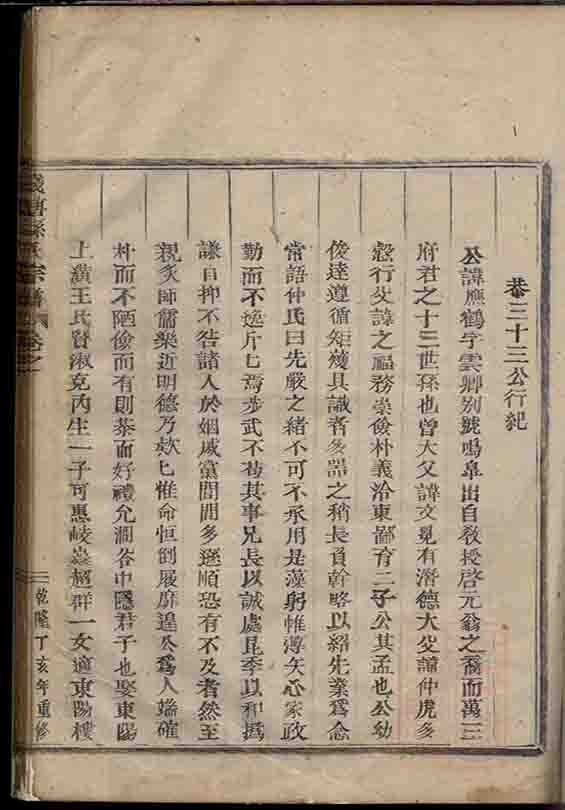 恭三十三公行紀
公諱應鶴字雲卿别號鳴臯出自教授啓元翁之裔而萬三
府君之十三世孫也曾大父諱文見有潛德大父諱仲虎多
穀行父諱之福務崇儉朴義洽東鄙育二子公其孟也公幼
俊達遵循矩矱具識者多器之稍長負幹略以紹先業爲念
常語仲氏曰先嚴之緒不可不承用是藻躬惟薄矢心家政
勤而不逸斤匕焉步武不苟其事兄長以誠處昆季以和撝
謙自抑不咎諸人於姻戚黨閭間多遜順恐有不及者然至
親炙師儒樂近明德乃欸匕惟命恒倒屣靡遑公爲人端確
朴而不陋儉而有則恭而好禮允澗谷中隱君子也娶東陽
上潢王氏賢淑克丙生一子可惠岐嶷超群一女適東陽樓
孫氏宗譜
卷之一
乾隆丁亥年重修